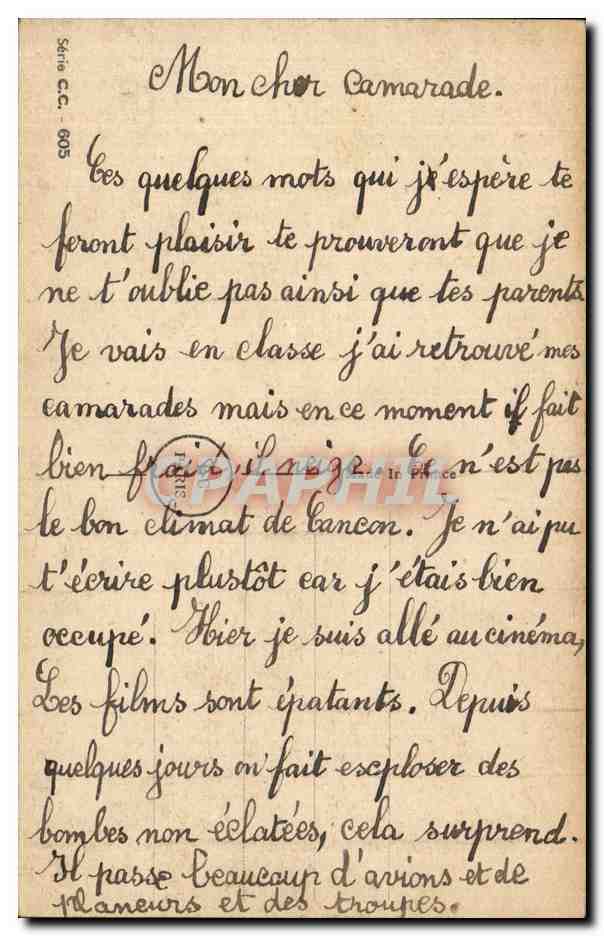 Série C.C. - 605
Mon cher camarade.
Ces quelques mots qui j'espère te
feront plaisir te prouveront que je
ne t'oublie pas ainsi que tes parents.
Je vais en classe j'ai retrouvé mes
camarades mais en ce moment il fait
bien froid, il neige. Ce n'est pas
Made in France
PARIS
CPAPHIL
le bon climat de Cancon. Je n'ai pu
t'écrire plustôt car j'étais bien
occupé. Hier je suis allé au cinéma,
Les films sont épatants. Depuis
quelques jours on fait escploser des
bombes non éclatées, cela surprend.
Il passe beaucoup d'avions et de
planeurs et des troupes.